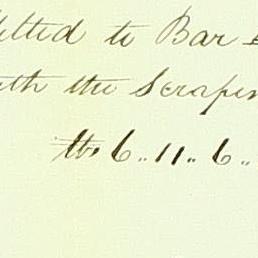 itted to Bar
th the Scrapin
lb. 6 .. 11 .. 6 ..